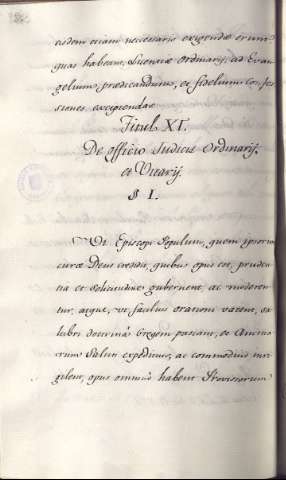 eisdem etiam necessario exigendæ erunt
quas habeant, licentiæ Ordinarij, ad Evan-
gelium, prædicandum, et fidelium confes-
siones excipiendas.
Titul. XI.
De officio Iudicis Ordinarij,
et Vicarij.
§ I.
Ut Episcopi Populum, quem ipsorum
curæ Deus credidit, quibus opus est, pruden-
tia et solicitudine gubernent, ac moderen-
tur, atque, ut facilius orationi vacent, sa-
lubri doctrina Gregem pascant, et Anima-
rum Saluti expeditius, ac commodius invi-
gilent, opus omnino habent Provisorum